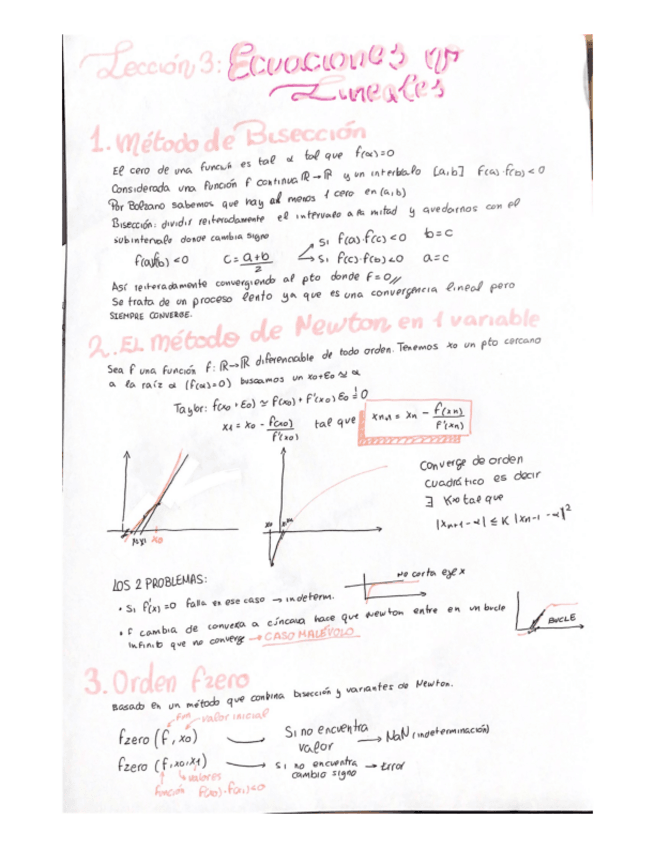 Lección 3: Ecuaciones no
Lineales
1. Método de Bisección
El cero de una función es tal α tal que f(α)=0
Considerada una función f continua ℝ→ℝ y un interbalo [a,b] f(a)·f(b)<0
Por Bolzano sabemos que hay al menos 1 cero en (a,b)
Bisección: dividir reiteradamente el intervalo a la mitad y quedarnos con el
subintervalo donde cambia signo
f(a)f(b)<0 c = a+b/2 si f(a)·f(c)<0 b=c
si f(c)·f(b)<0 a=c
Así reiteradamente convergiendo al pto donde F=0//
Se trata de un proceso lento ya que es una convergencia lineal pero
SIEMPRE CONVERGE.
2. EL método de Newton en 1 variable
Sea f una función f: ℝ→ℝ diferenciable de todo orden. Tenemos x0 un pto cercano
a la raíz α (f(α)=0) buscamos un x0+ε0 ≃ α
Taylor: f(x0+ε0) ≃ f(x0) + f'(x0) ε0 = 0
x1 = x0 - f(x0)/f'(x0) tal que xn+1 = xn - f(xn)/f'(xn)
Converge de orden
cuadrático es decir
∃ K>0 tal que
|xn+1 - α| ≤ K |xn-1 - α|²
x1 x0
x0
LOS 2 PROBLEMAS:
No corta eje x
• Si f'(x)=0 falla en ese caso → indeterm.
• f cambia de convexa a cóncava hace que Newton entre en un bucle
infinito que no converg → CASO MALÉVOLO
BUCLE
3. Orden fzero
Basado en un método que conbina bisección y variantes de Newton.
Fun valor inicial
fzero (f, x0) Si no encuentra valor → NaN (indeterminación)
fzero (f, x0, x1) si no encuentra cambio signo → Error
función valores
f(x0)·f(x1)<0